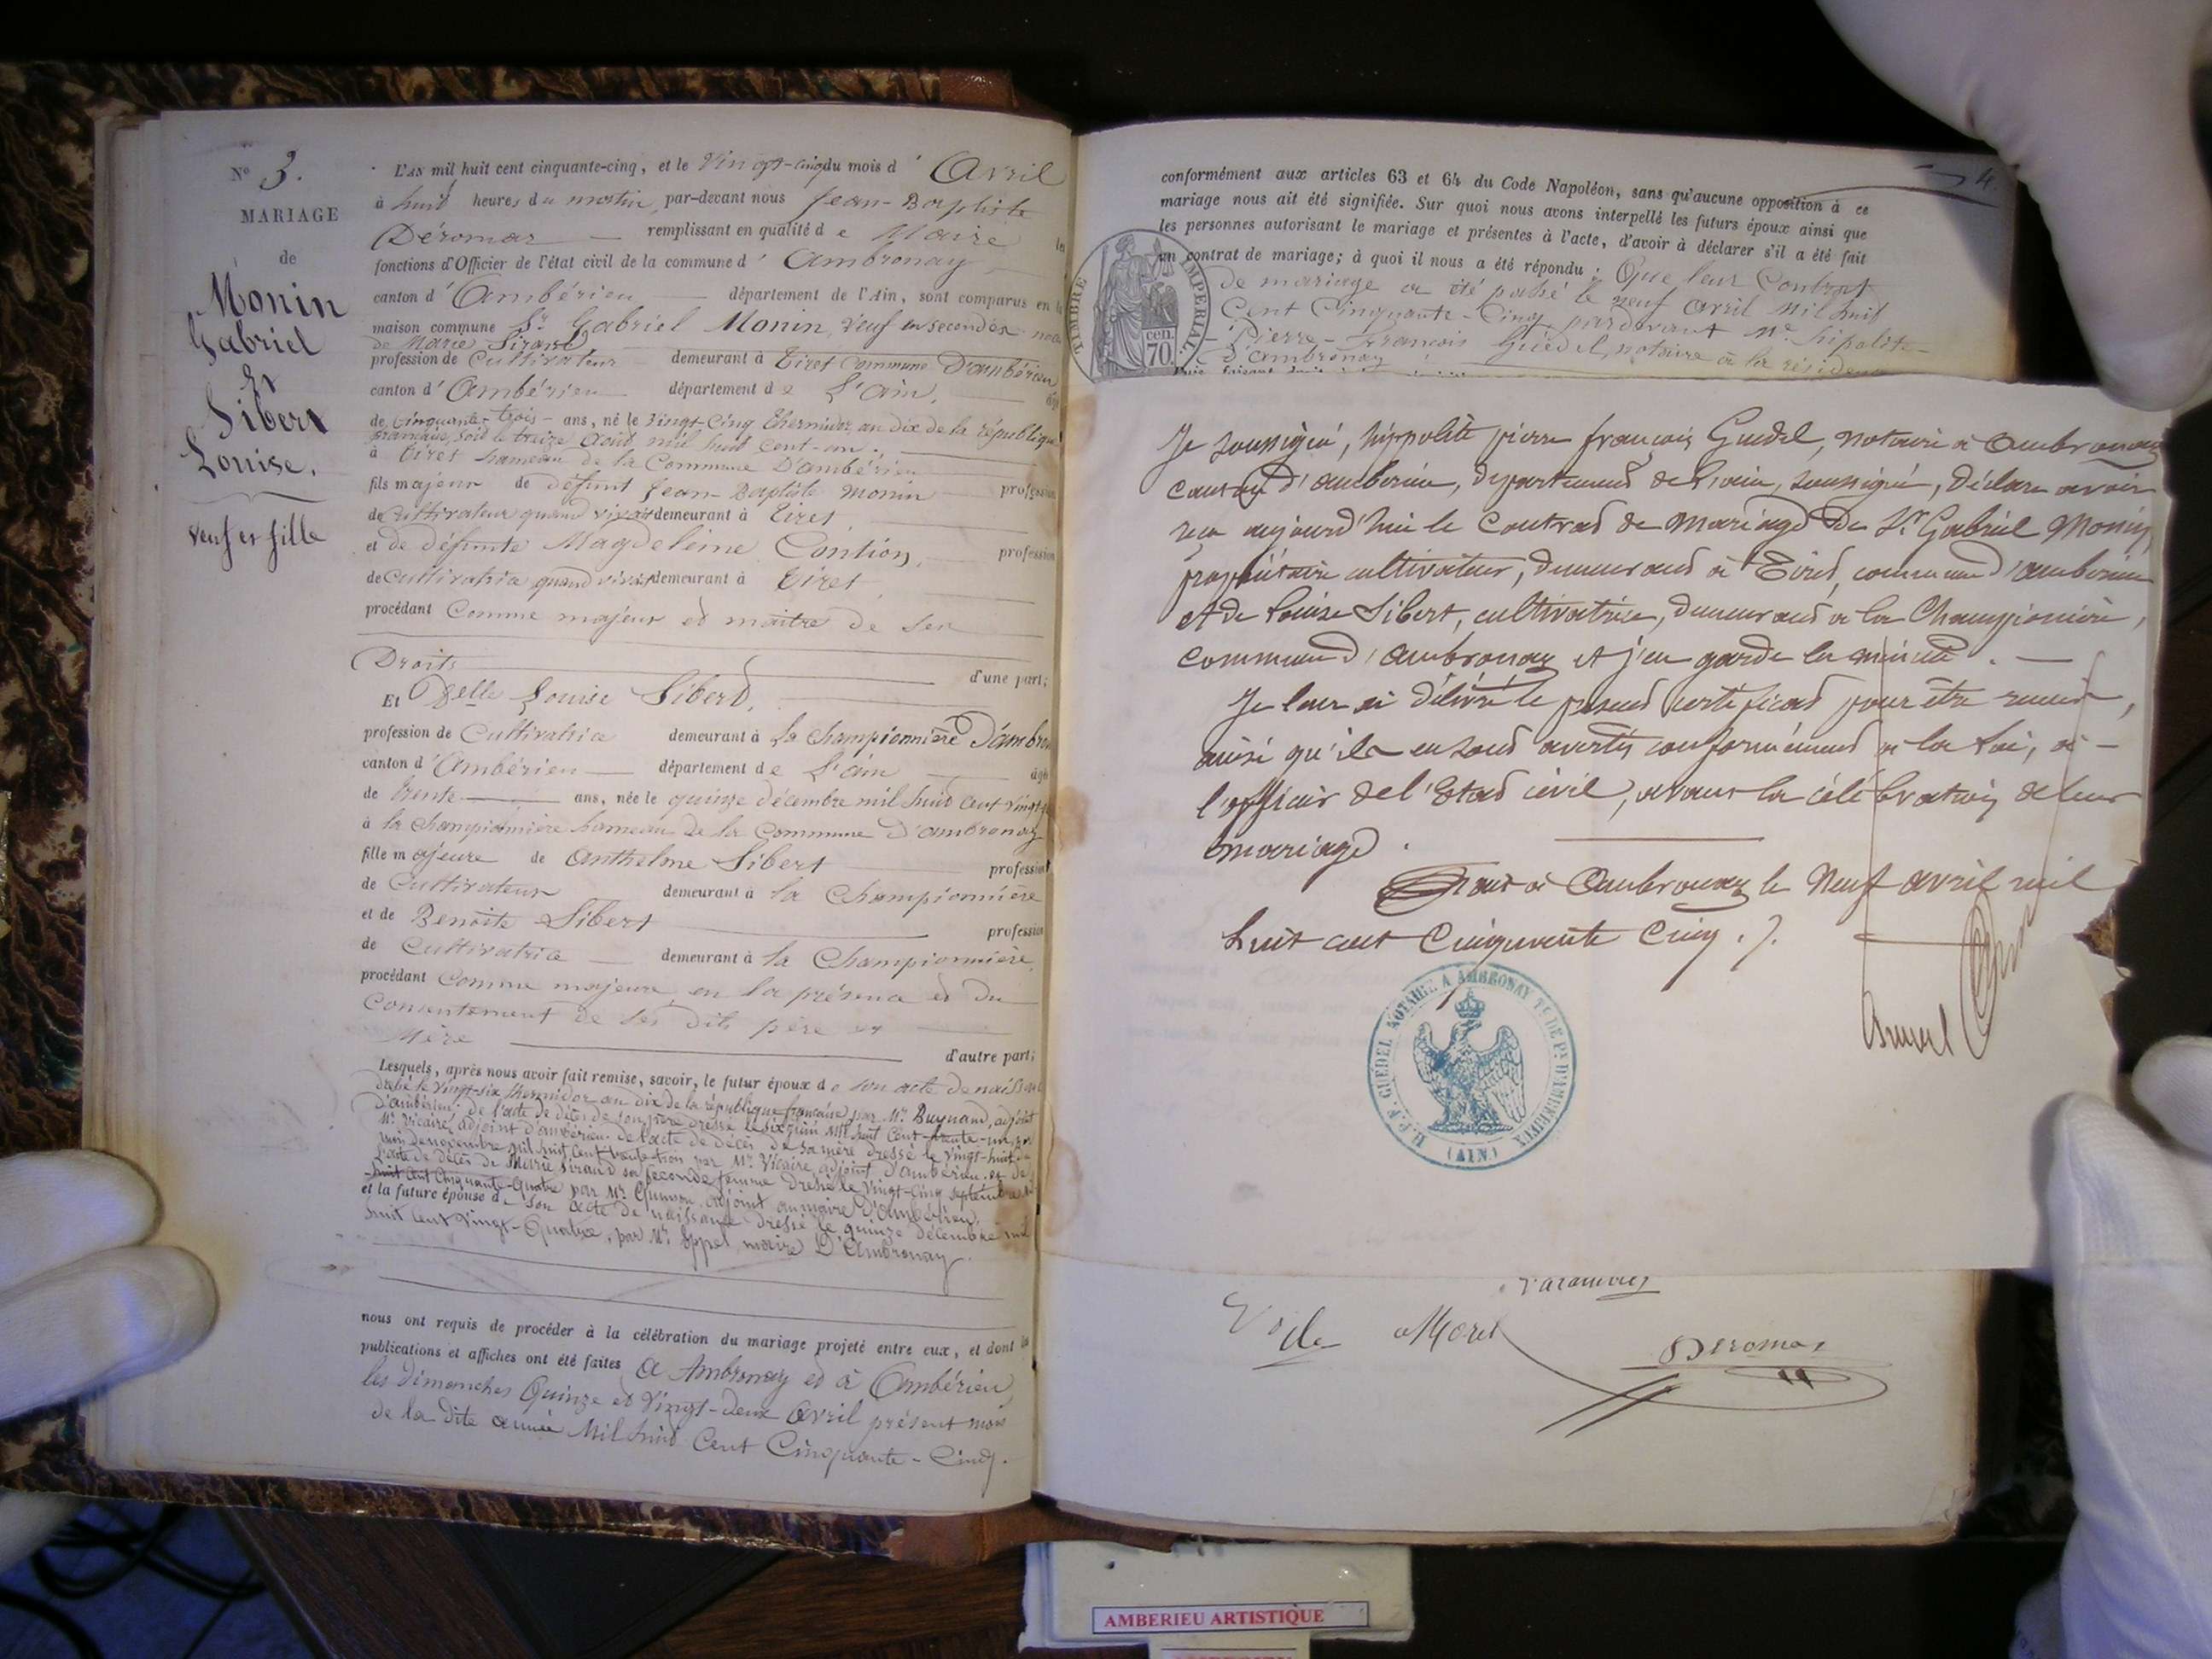 N° 3.
MARIAGE
de
Monin
Gabriel
Et
Sibert
Louise.
veuf et fille
L'AN mil huit cent cinquante-cinq, et le Vingt-cinq du mois d' Avril
à huit heures du matin, par-devant nous Jean-Baptiste
Déromas remplissant en qualité de Maire les
fonctions d'Officier de l'état civil de la commune d' Ambronay
canton d' Ambérieu département de l'Ain, sont comparus en la
maison commune Sr. Gabriel Monin, veuf en secondes noces
de Marie Sirand
profession de Cultivateur demeurant à Tiret Commune D'ambérieu
canton d' Ambérieu département de L'ain, âgé
de cinquante-trois ans, né le vingt-cinq thermidor an dix de la république
française, soit le treize Août mil huit cent-un,
à Tiret hameau de la Commune D'ambérieu
fils majeur de défunt Jean-Baptiste Monin profession
de Cultivateur quand vivait demeurant à Tiret,
et de défunte Magdeleine Contion, profession
de Cultivatrice quand vivait demeurant à Tiret,
procédant Comme majeur et maître de ses
Droits d'une part;
Et Delle Louise Sibert,
profession de Cultivatrice demeurant à La Championnière D'ambro
canton d' Ambérieu département de L'ain âgée
de trente ans, née le quinze décembre mil huit cent vingt-
à la Championnière hameau de la Commune D'ambronay
fille majeure de Anthelme Sibert profession
de Cultivateur demeurant à la Championnière
et de Benoîte Sibert profession
de Cultivatrice demeurant à la Championnière,
procédant Comme majeure en la présence et du
Consentement de ses dits père et
Mère d'autre part;
Lesquels, après nous avoir fait remise, savoir, le futur époux de son acte de naissance
daté le vingt-six thermidor an dix de la république française par Mr. Buynand, adjoint
d'ambérieu. de l'acte de décès de son père dressé le six juin mil huit cent-trente-un, par
Mr. Vicaire, adjoint d'ambérieu. de l'acte de décès de sa mère dressé le vingt-huit du
mois de novembre mil huit cent trente-trois par Mr. Vicaire, adjoint d'ambérieu. et de
l'acte de décès de Marie Sirand sa seconde femme dressé le vingt-cinq septembre mil
huit cent Cinquante-Quatre par Mr. adjoint au maire D'Ambérieu,
et la future épouse de son acte de naissance dressé le quinze décembre mil
huit cent vingt-Quatre, par Mr. Eppel, maire D'Ambronay.
nous ont requis de procéder à la célébration du mariage projeté entre eux, et dont les
publications et affiches ont été faites à Ambronay et à Ambérieu,
les dimanches Quinze et Vingt-deux Avril présent mois
de la dite année Mil huit Cent Cinquante-Cinq.
4.
conformément aux articles 63 et 64 du Code Napoléon, sans qu'aucune opposition à ce
mariage nous ait été signifiée. Sur quoi nous avons interpellé les futurs époux ainsi que
les personnes autorisant le mariage et présentes à l'acte, d'avoir à déclarer s'il a été fait
un contrat de mariage; à quoi il nous a été répondu : Que leur Contrat
de mariage a été passé le neuf Avril Mil huit
Cent Cinquante-Cinq, pardevant Me. hipolite-
Pierre-François Guédel, notaire à la résidence
D'Ambronay
TIMBRE IMPERIAL.
cen.
70
Je soussigné, hippolite pierre françois Guedel, notaire à Ambronay
canton d'ambérieu, département de l'ain, soussigné, déclare avoir
reçu aujourd'hui le Contrat de mariage De Sr Gabriel Monin,
propriétaire cultivateur, demeurant à Tiret, commune d'ambérieu
et de Louise Sibert, cultivatrice, demeurant à la Championière,
commune d'ambronay et j'en garde la minute.
Je leur ai délivré le présent certificat pour être remis,
ainsi qu'ils en sont avertis conformément à la loi, à
l'officier de l'Etat civil, avant la célébration de leur
mariage.
Fait à Ambronay le Neuf avril mil
huit cent Cinquante Cinq.
H. P. F. GUEDEL NOTAIRE A AMBRONAY
(AIN)
Morel
Déromas
AMBERIEU ARTISTIQUE